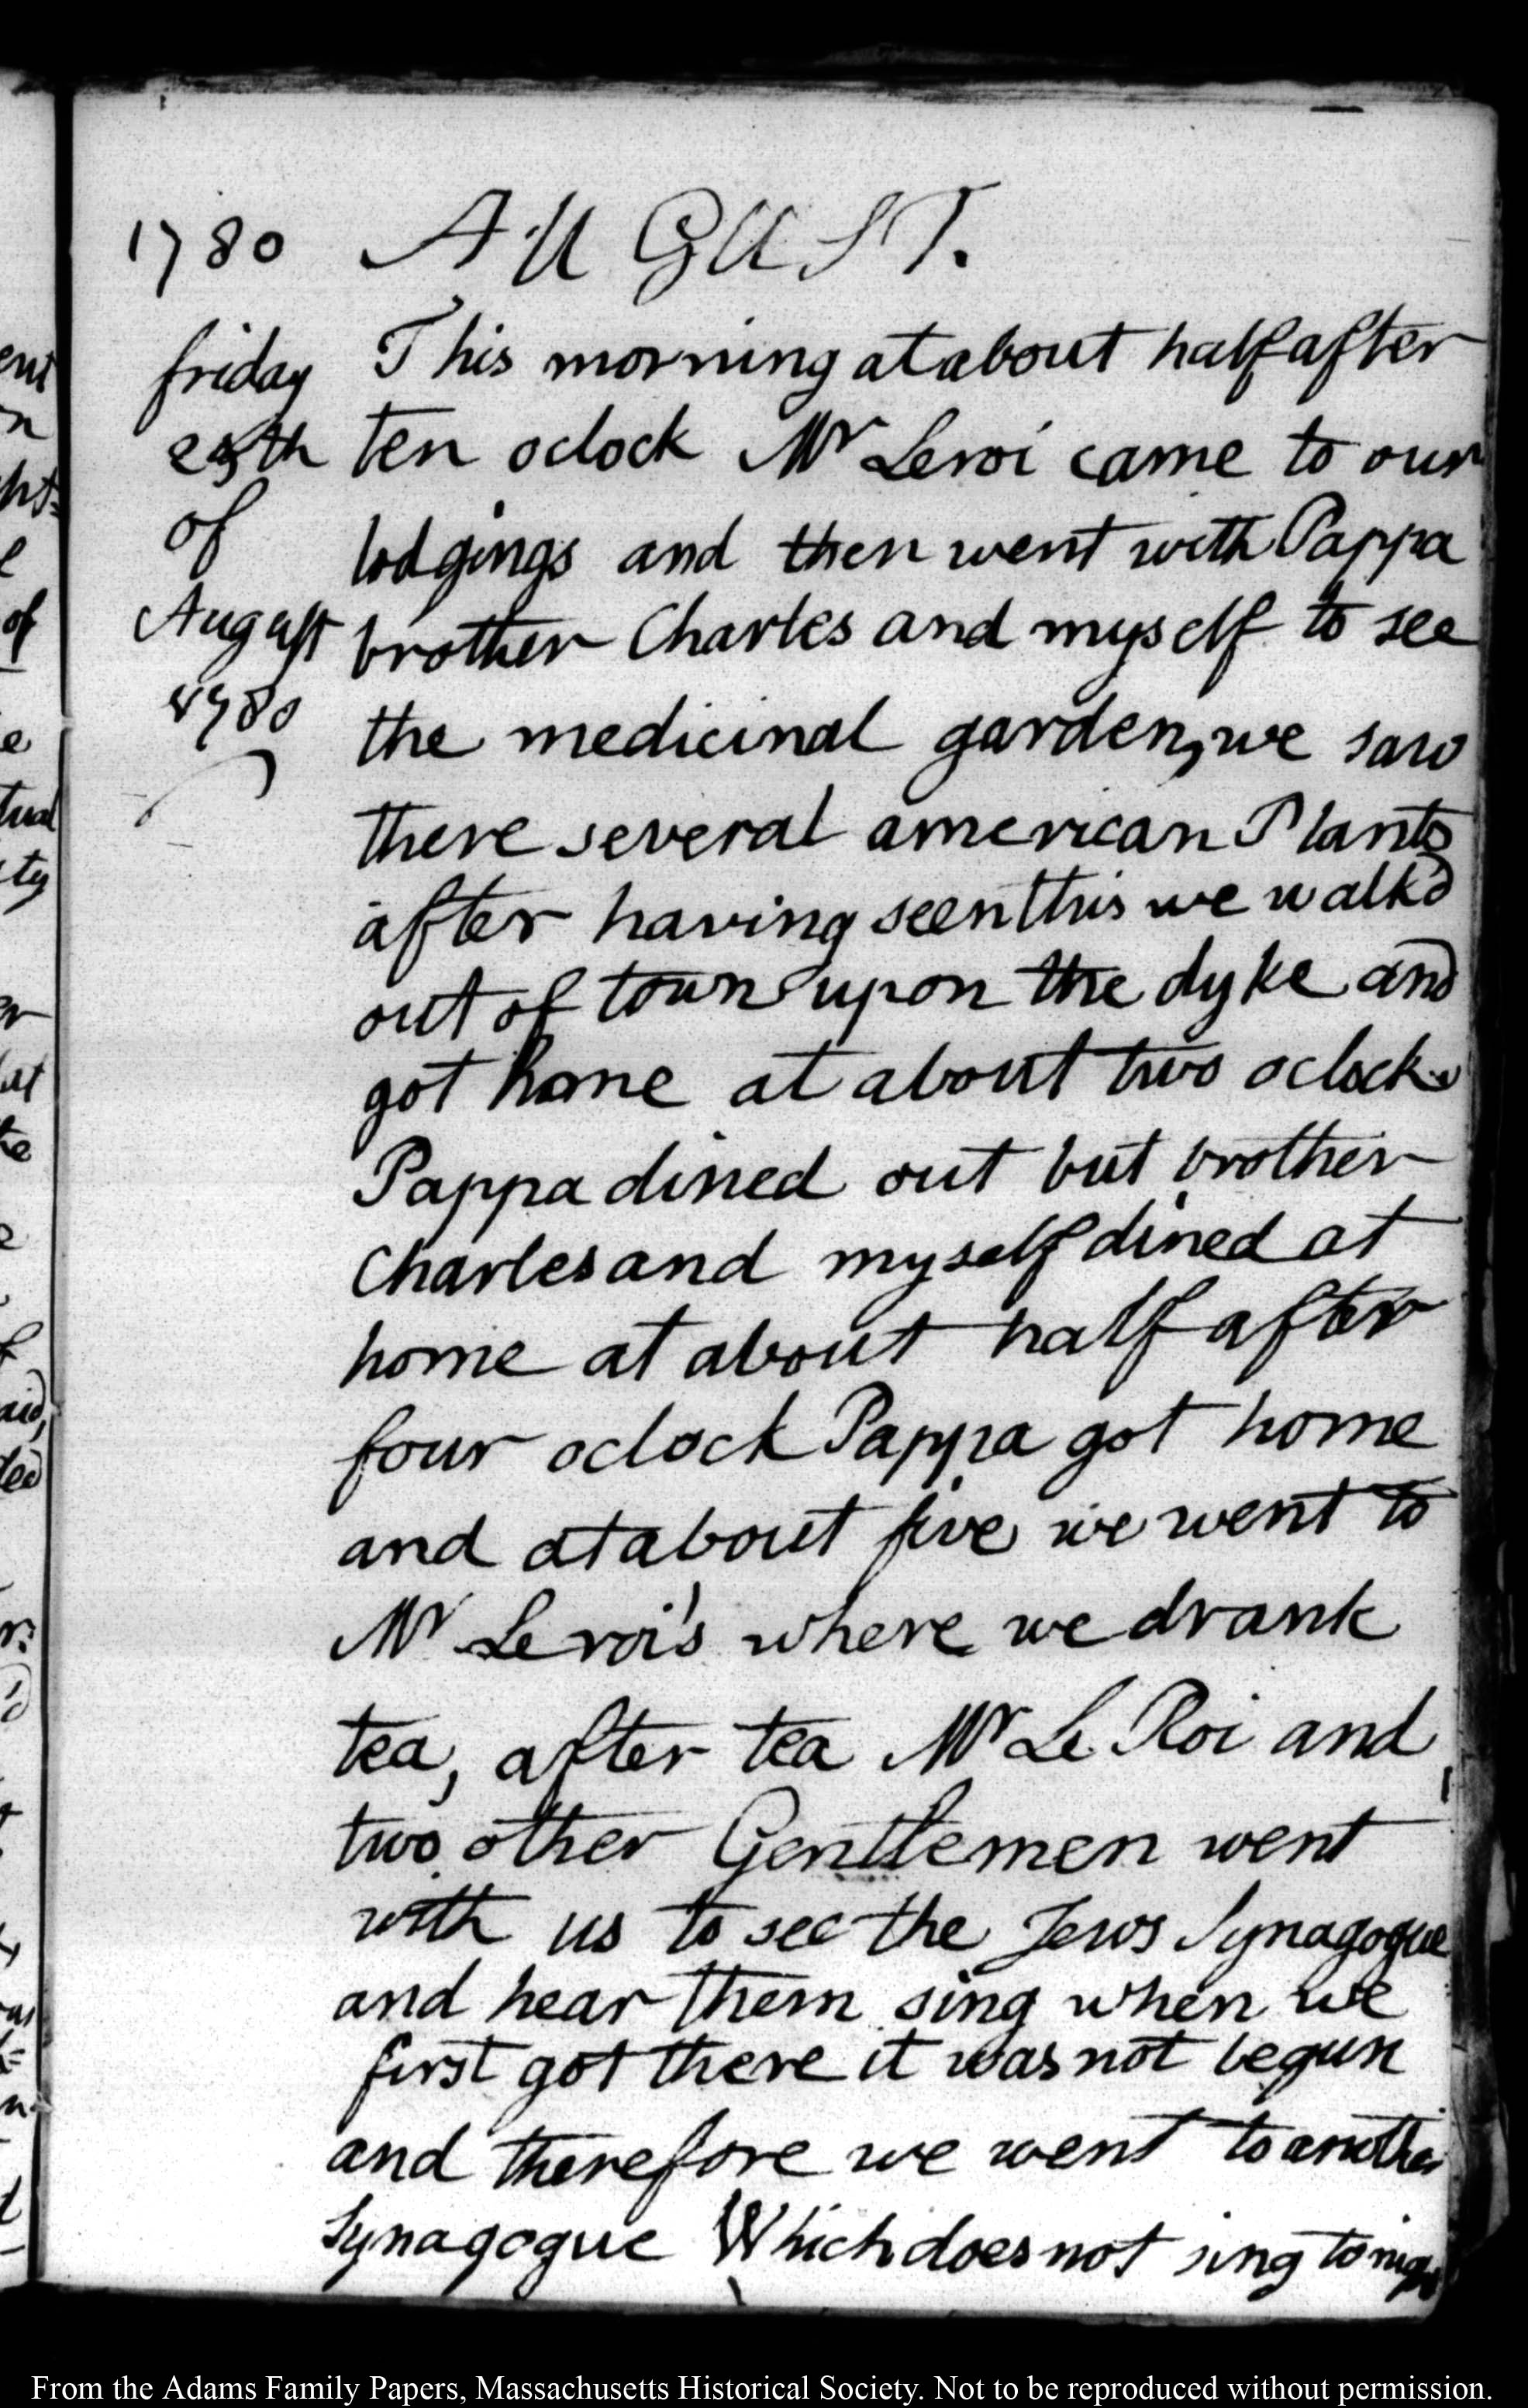 1780 AUGUST.
friday This morning at about half after
25th ten oclock Mr Leroi came to our
of lodgings and then went with Pappa
August brother Charles and myself to see
1780 the medicinal garden, we saw
there several american Plants
after having seen this we walk'd
out of town upon the dyke and
got home at about two oclock.
Pappa dined out but brother
Charles and myself dined at
home at about half after
four oclock Pappa got home
and at about five we went to
Mr Leroi's where we drank
tea, after tea Mr Le Roi and
two other Gentlemen went
with us to see the Jews Synagogue
and hear them sing when we
first got there it was not begun
and therefore we went to another
Synagogue Which does not sing to
From the Adams Family Papers, Massachusetts Historical Society. Not to be reproduced without permission.